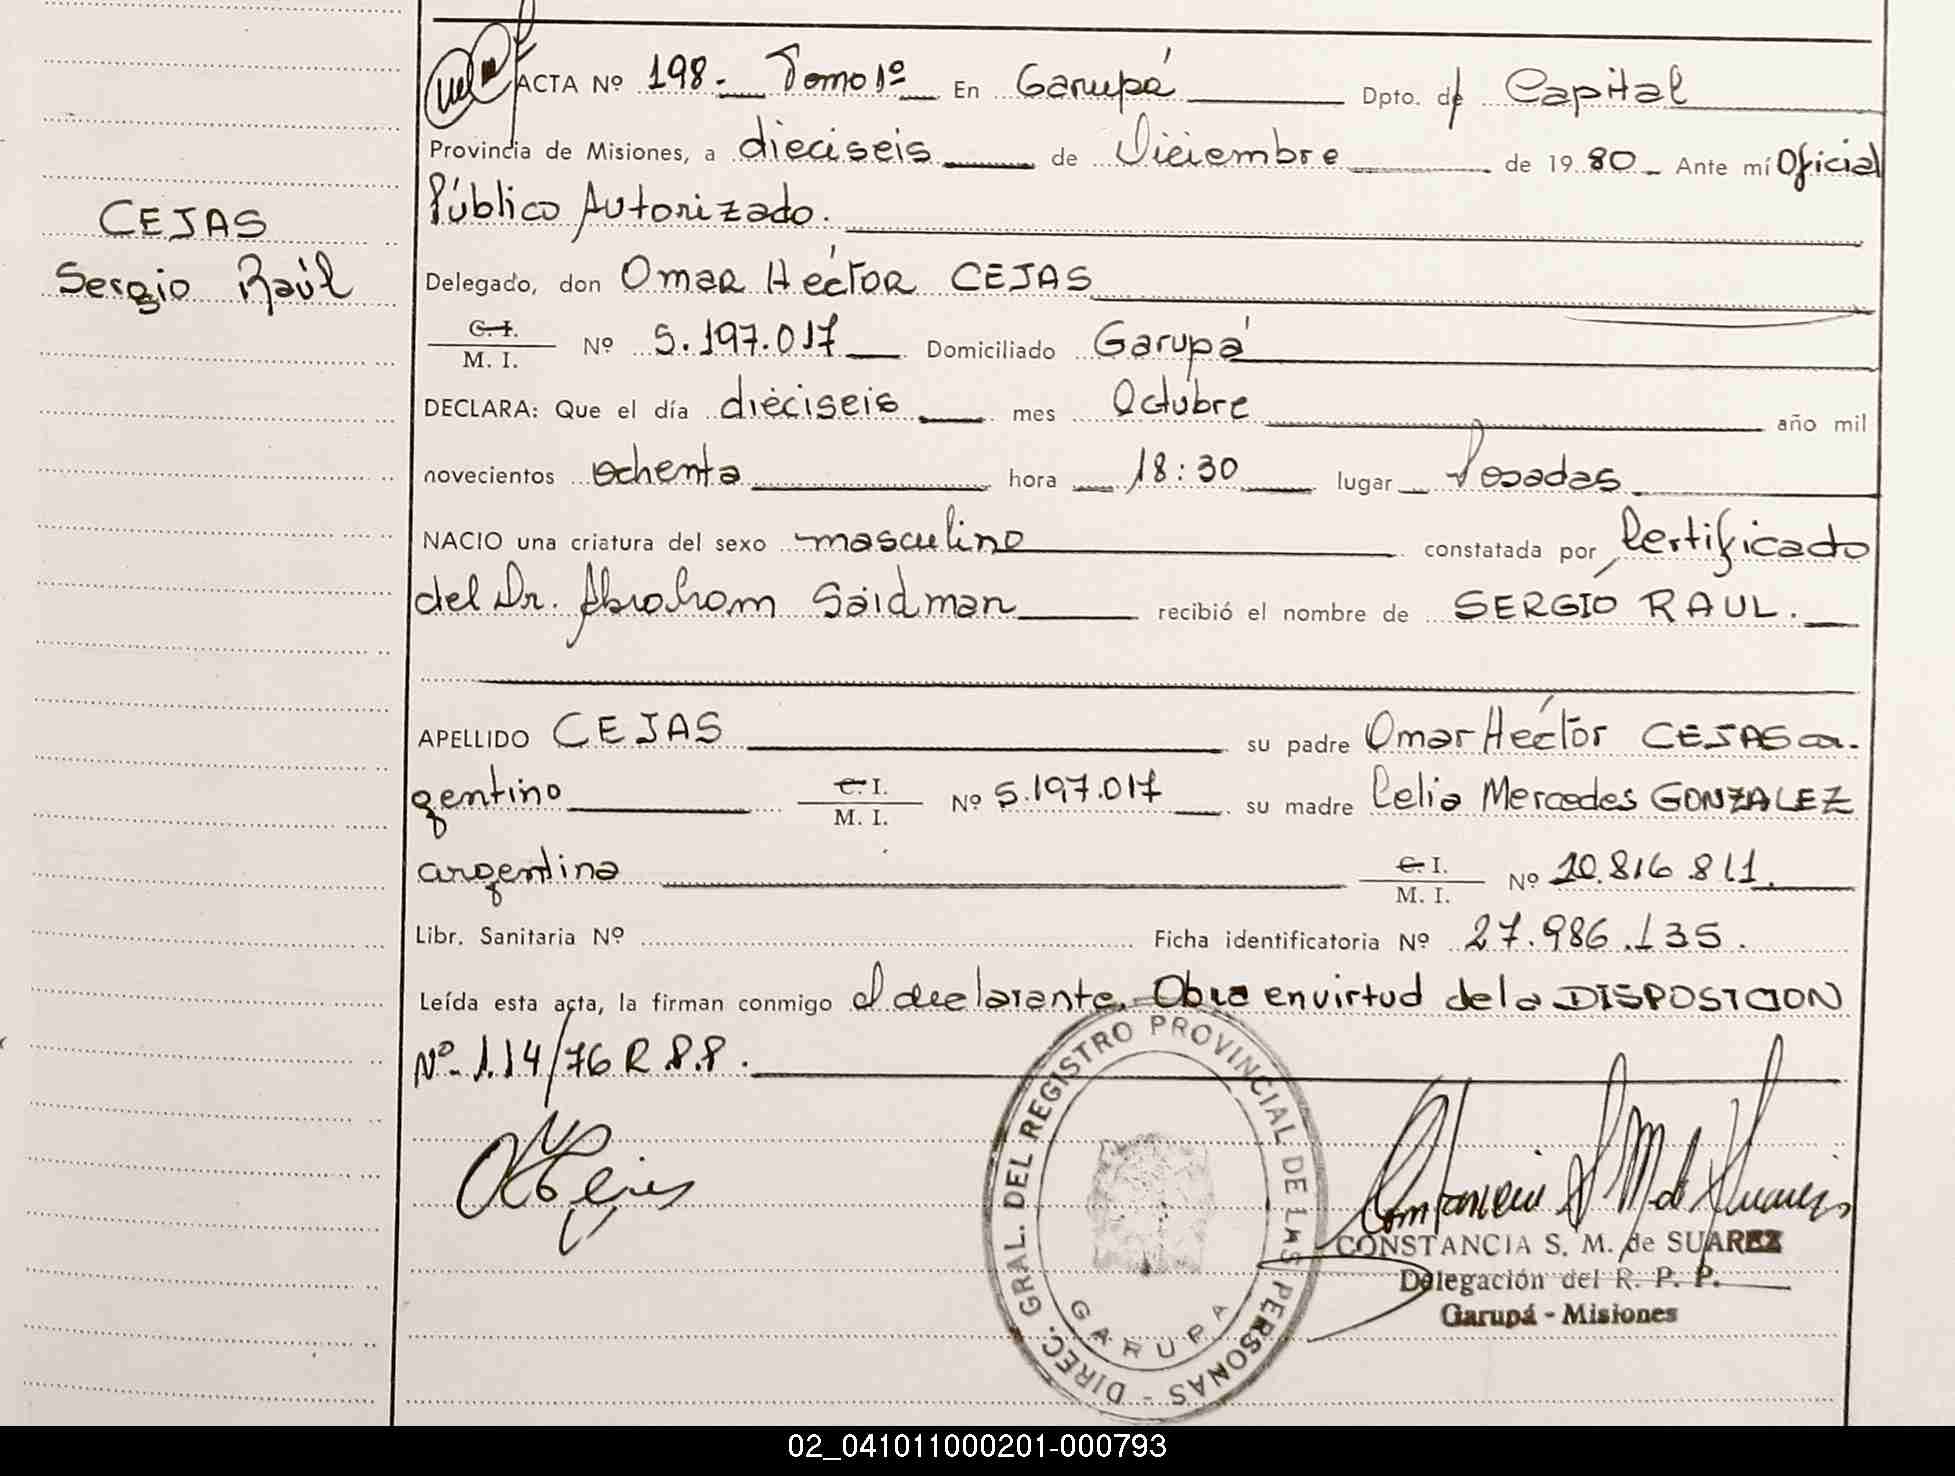 ACTA Nº 198.- Tomo 1º En Garupá Dpto. de Capital
Provincia de Misiones, a dieciseis de Diciembre de 19 80 Ante mí Oficial
Público Autorizado.
CEJAS
Sergio Raúl
Delegado, don Omar Héctor CEJAS
C. I.
M. I. Nº 5.197.017 Domiciliado Garupá
DECLARA: Que el día dieciseis mes Octubre año mil
novecientos ochenta hora 18:30 lugar Posadas
NACIO una criatura del sexo masculino constatada por Certificado
del Dr. Abraham Saidman recibió el nombre de SERGIO RAUL.
APELLIDO CEJAS su padre Omar Héctor CEJAS ar-
gentino C. I. M. I. Nº 5.197.017 su madre Celia Mercedes GONZALEZ
argentina C. I. M. I. Nº 10.816.811.
Libr. Sanitaria Nº Ficha identificatoria Nº 27.986.135.
Leída esta acta, la firman conmigo el declarante. Obra en virtud de la DISPOSICION
Nº 114/76 R.P.P.
DIREC. GRAL. DEL REGISTRO PROVINCIAL DE LAS PERSONAS -
GARUPA
CONSTANCIA S. M. de SUAREZ
Delegación del R. P. P.
Garupá - Misiones
02_041011000201-000793